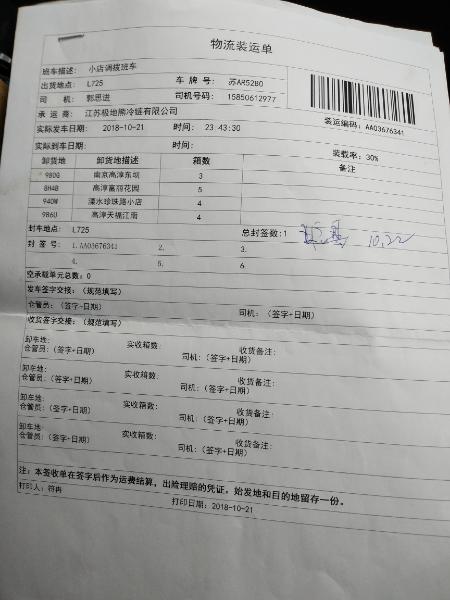 物流装运单
班车描述: 小店调拨班车
出货地点: L725 车 牌 号: 苏AR52B0
司 机: 郭思进 司机号码: 15850612977
承 运 商: 江苏极地熊冷链有限公司 装运编码: AA03676341
实际发车日期: 2018-10-21 时间: 23:43:30
实际到车日期: 时间: 装载率: 30%
卸货地 卸货地描述 箱数 备注
980G 南京高淳东坝 3
8H4B 高淳富丽花园 5
940W 溧水珍珠路小店 4
986U 高淳天福江南 4
封车地点: L725 总封签数:1 10.22
封 签 号: 1.AA03676341 2. 3.
4. 5. 6.
空承载单元总数: 0
发车签字交接: (规范填写)
仓管员: (签字+日期) 司机: (签字+日期)
收货签字交接: (规范填写)
卸车地: 实收箱数: 收货备注:
仓管员: (签字+日期) 司机: (签字+日期)
卸车地: 实收箱数: 收货备注:
仓管员: (签字+日期) 司机: (签字+日期)
卸车地: 实收箱数: 收货备注:
仓管员: (签字+日期) 司机: (签字+日期)
卸车地: 实收箱数: 收货备注:
仓管员: (签字+日期) 司机: (签字+日期)
注: 本签收单在签字后作为运费结算, 出险理赔的凭证, 始发地和目的地留存一份。
打印人: 符冉 打印日期: 2018-10-21